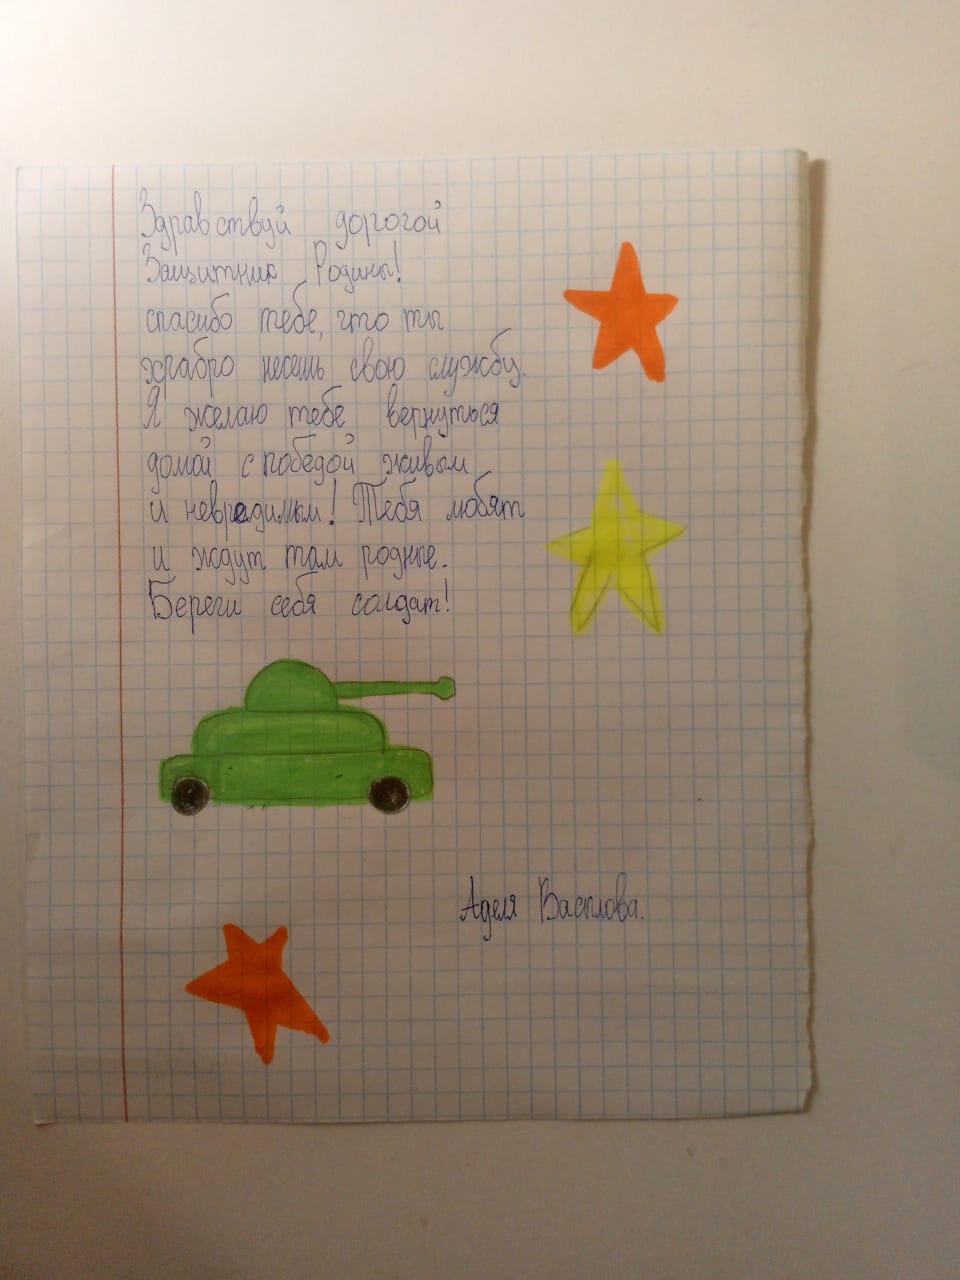 Здравствуй дорогой
Защитник Родины!
спасибо тебе, что ты
храбро несешь свою службу.
Я желаю тебе вернуться
домой с победой живым
и невредимым! Тебя любят
и ждут там родные.
Береги себя солдат!
Аделя